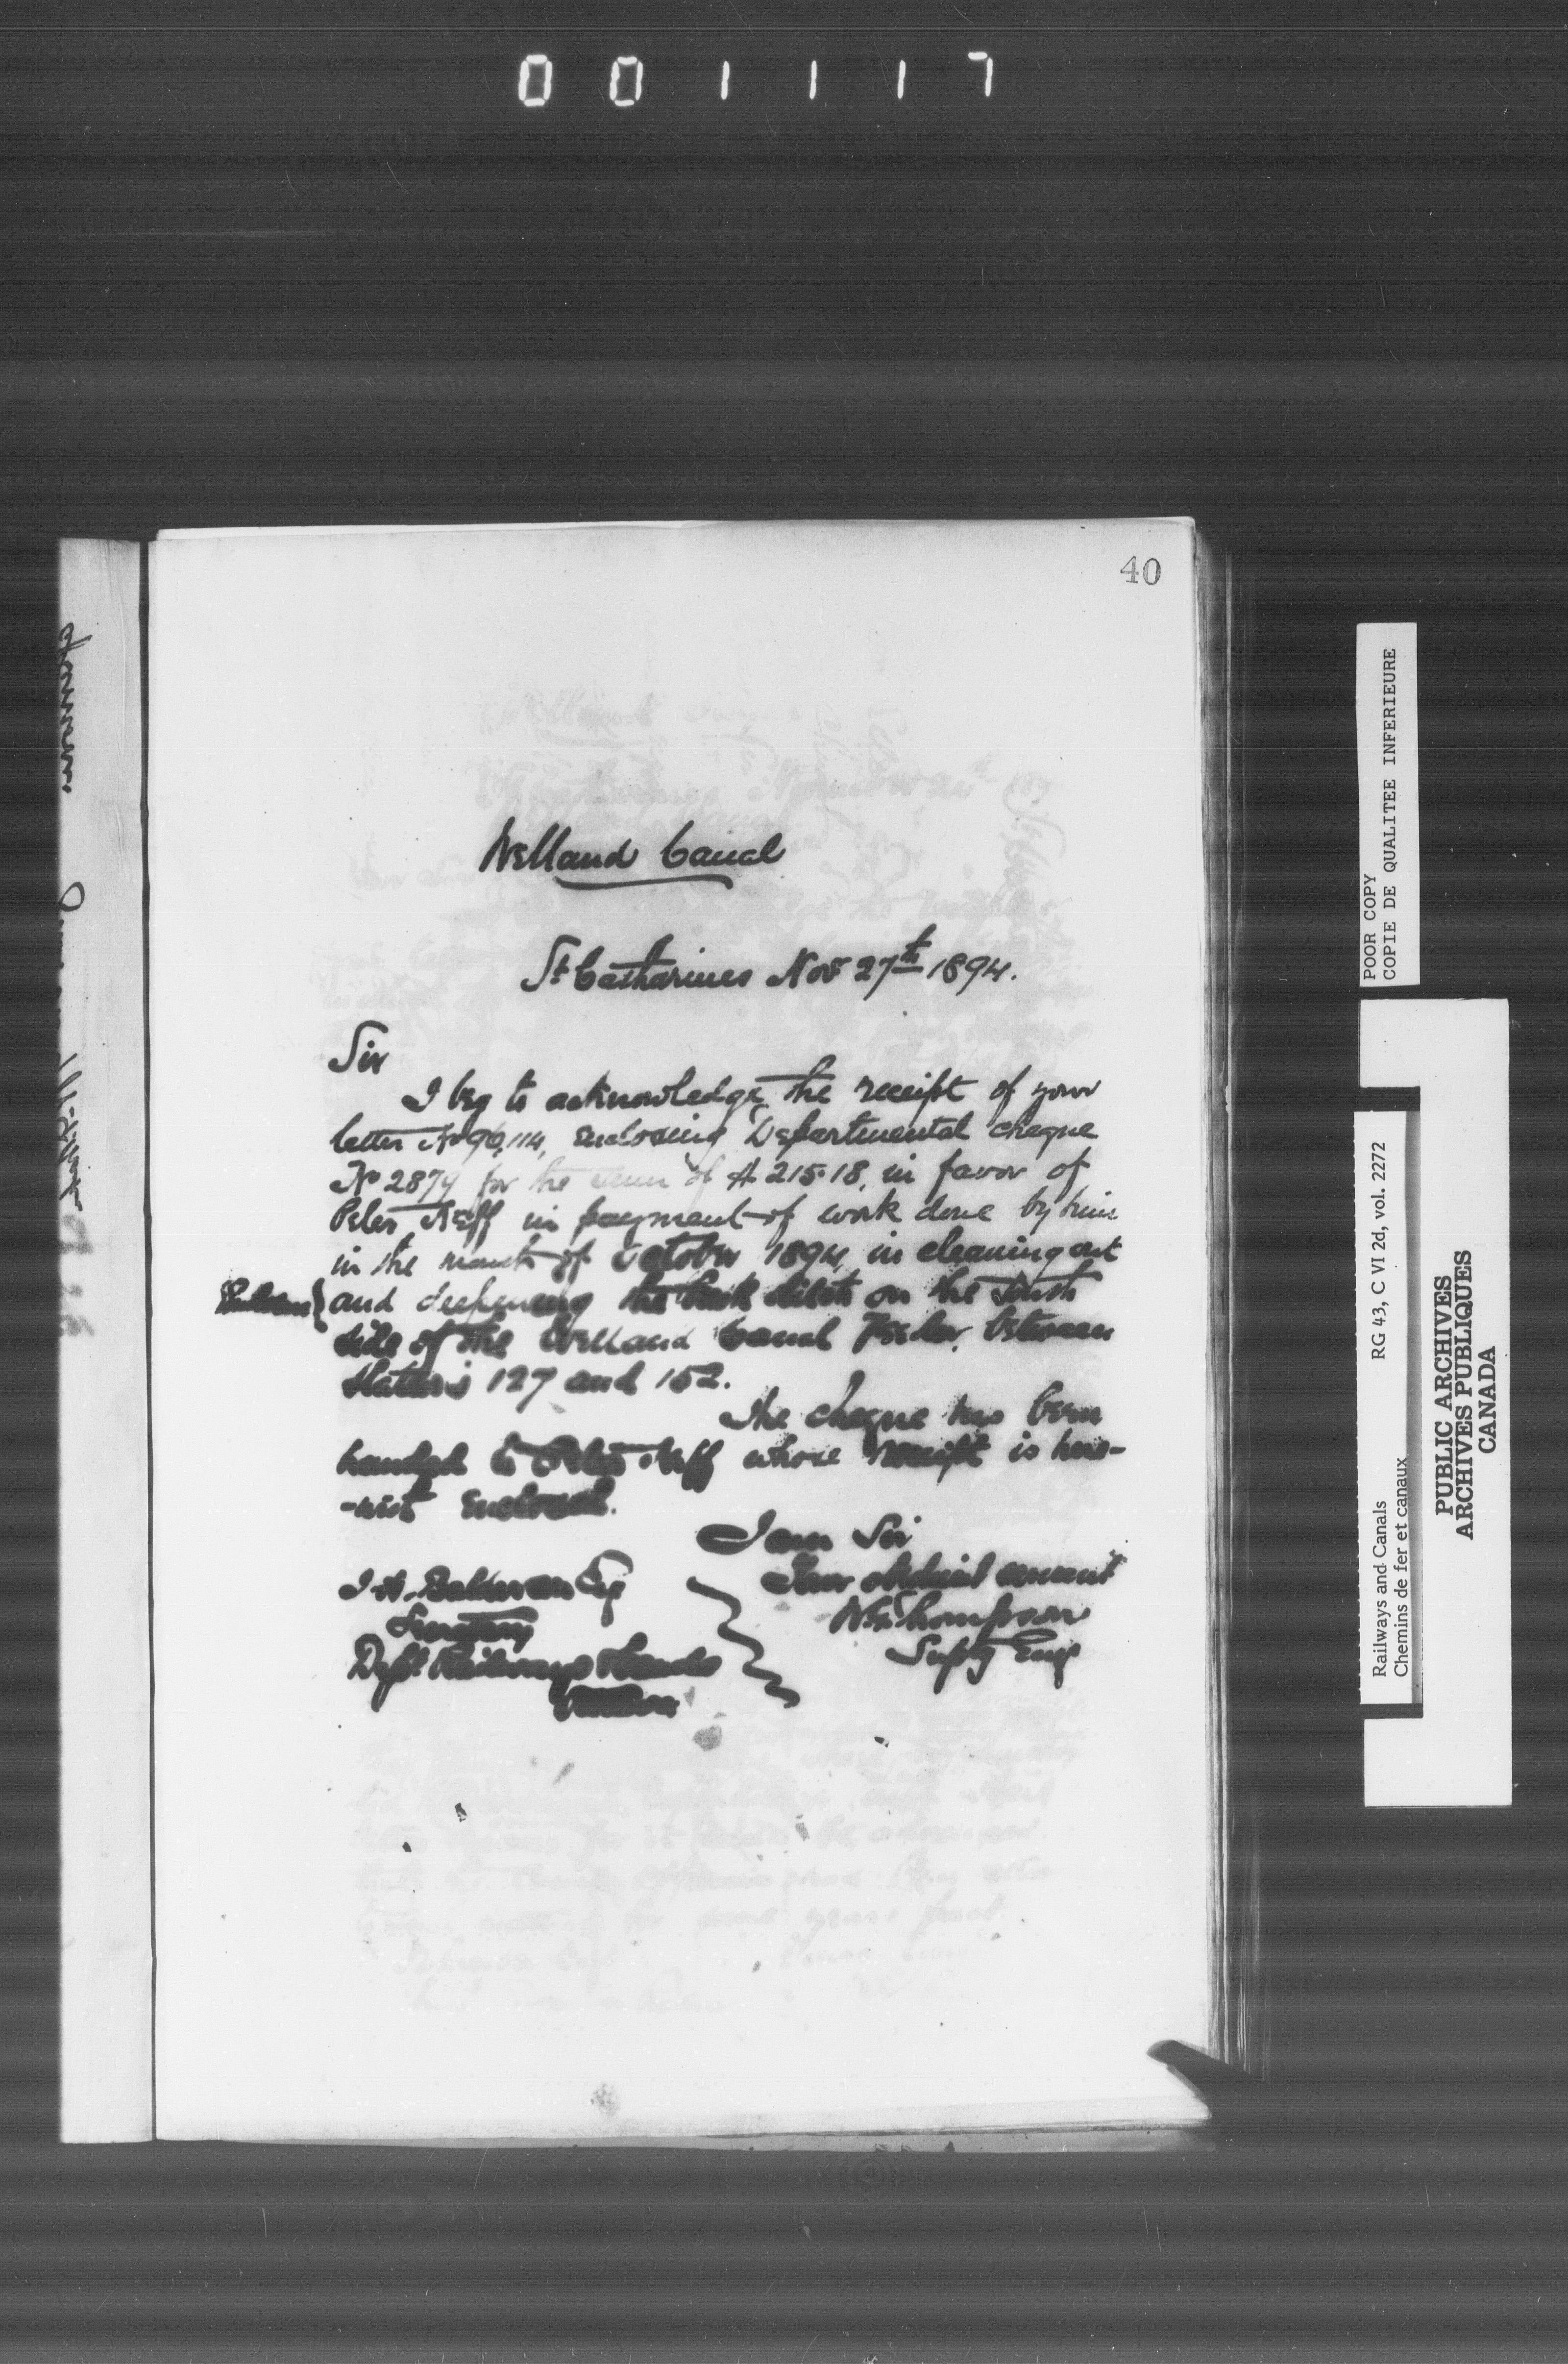 001117
40
Welland Canal
St Catharines Nov 27th 1894.
Sir
I beg to acknowledge the receipt of your
letter No 96,114, enclosing Departmental cheque
No 2879 for the sum of $ 215.18, in favor of
Peter Neff in payment of work done by him
in the month of October 1894, in cleaning out
and deepening the back ditch on the South
side of the Welland Canal Feeder, between
Stations 127 and 152.
The cheque has been
handed to Peter Neff whose receipt is here-
-with enclosed.
I am Sir
Your obedient servant
W.G. Thompson
Supt'g Eng'r
Esq
Secretary
Dept. Railways & Canals
Ottawa
POOR COPY
COPIE DE QUALITEE INFERIEURE
Railways and Canals
Chemins de fer et canaux
RG 43, C VI 2d, vol. 2272
PUBLIC ARCHIVES
ARCHIVES PUBLIQUES
CANADA